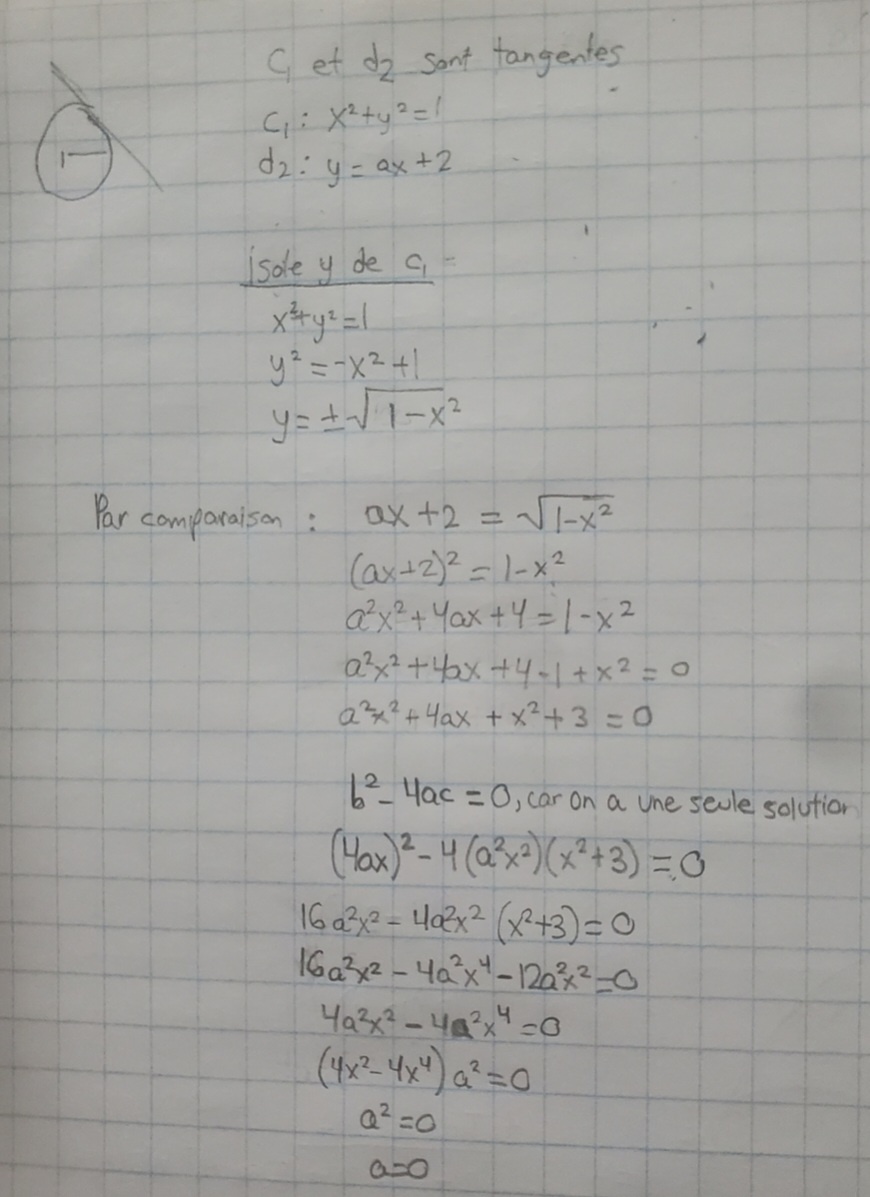 C₁ et d₂ sont tangentes
C₁ : x²+y²=1
d₂ : y = ax+2
isole y de c₁
x²+y²=1
y² = -x²+1
y = ±√(1-x²)
Par comparaison : ax+2 = √(1-x²)
(ax+2)² = 1-x²
a²x²+4ax+4=1-x²
a²x²+4ax+4-1+x²=0
a²x²+4ax+x²+3=0
b²-4ac=0, car on a une seule solution
(4ax)²-4(a²x²)(x²+3)=0
16a²x²-4a²x²(x²+3)=0
16a²x²-4a²x⁴-12a²x²=0
4a²x²-4a²x⁴=0
(4x²-4x⁴)a²=0
a²=0
a=0